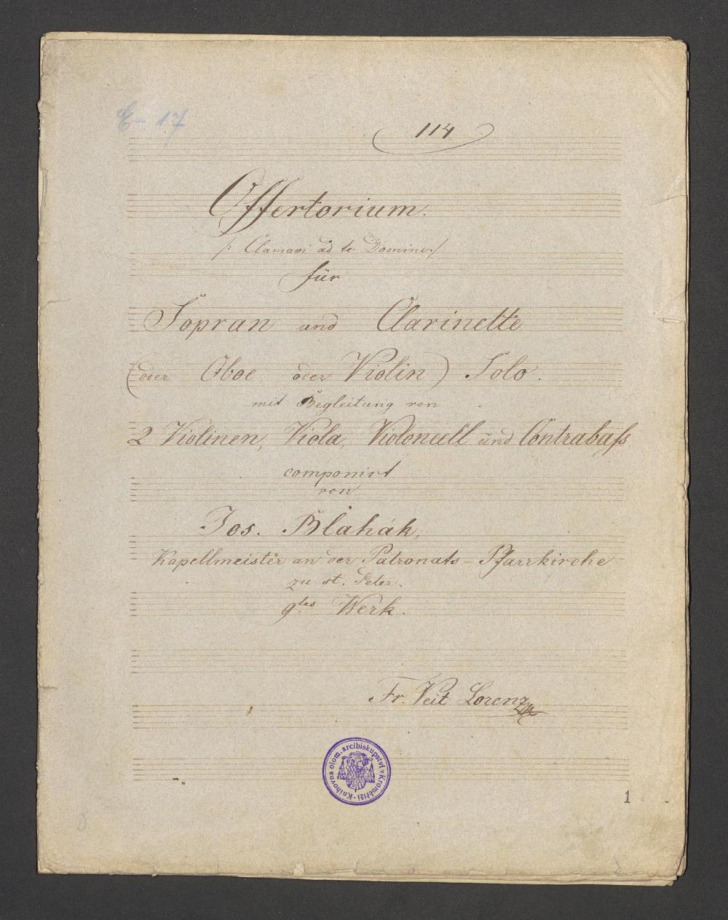 E-17
114
Offertorium.
/: Clamavi ad te Domine :/
für
Sopran und Clarinette
(oder Oboe oder Violin) Solo.
mit Begleitung von
2 Violinen, Viola, Violoncell und Contrabaß
componirt
von
Jos. Blahák,
Kapellmeister an der Patronats-Pfarrkirche
zu st. Peter.
9tes Werk.
Fr. Veit Lorenz
Knihovna olom. arcibiskupství v Kroměříži
1